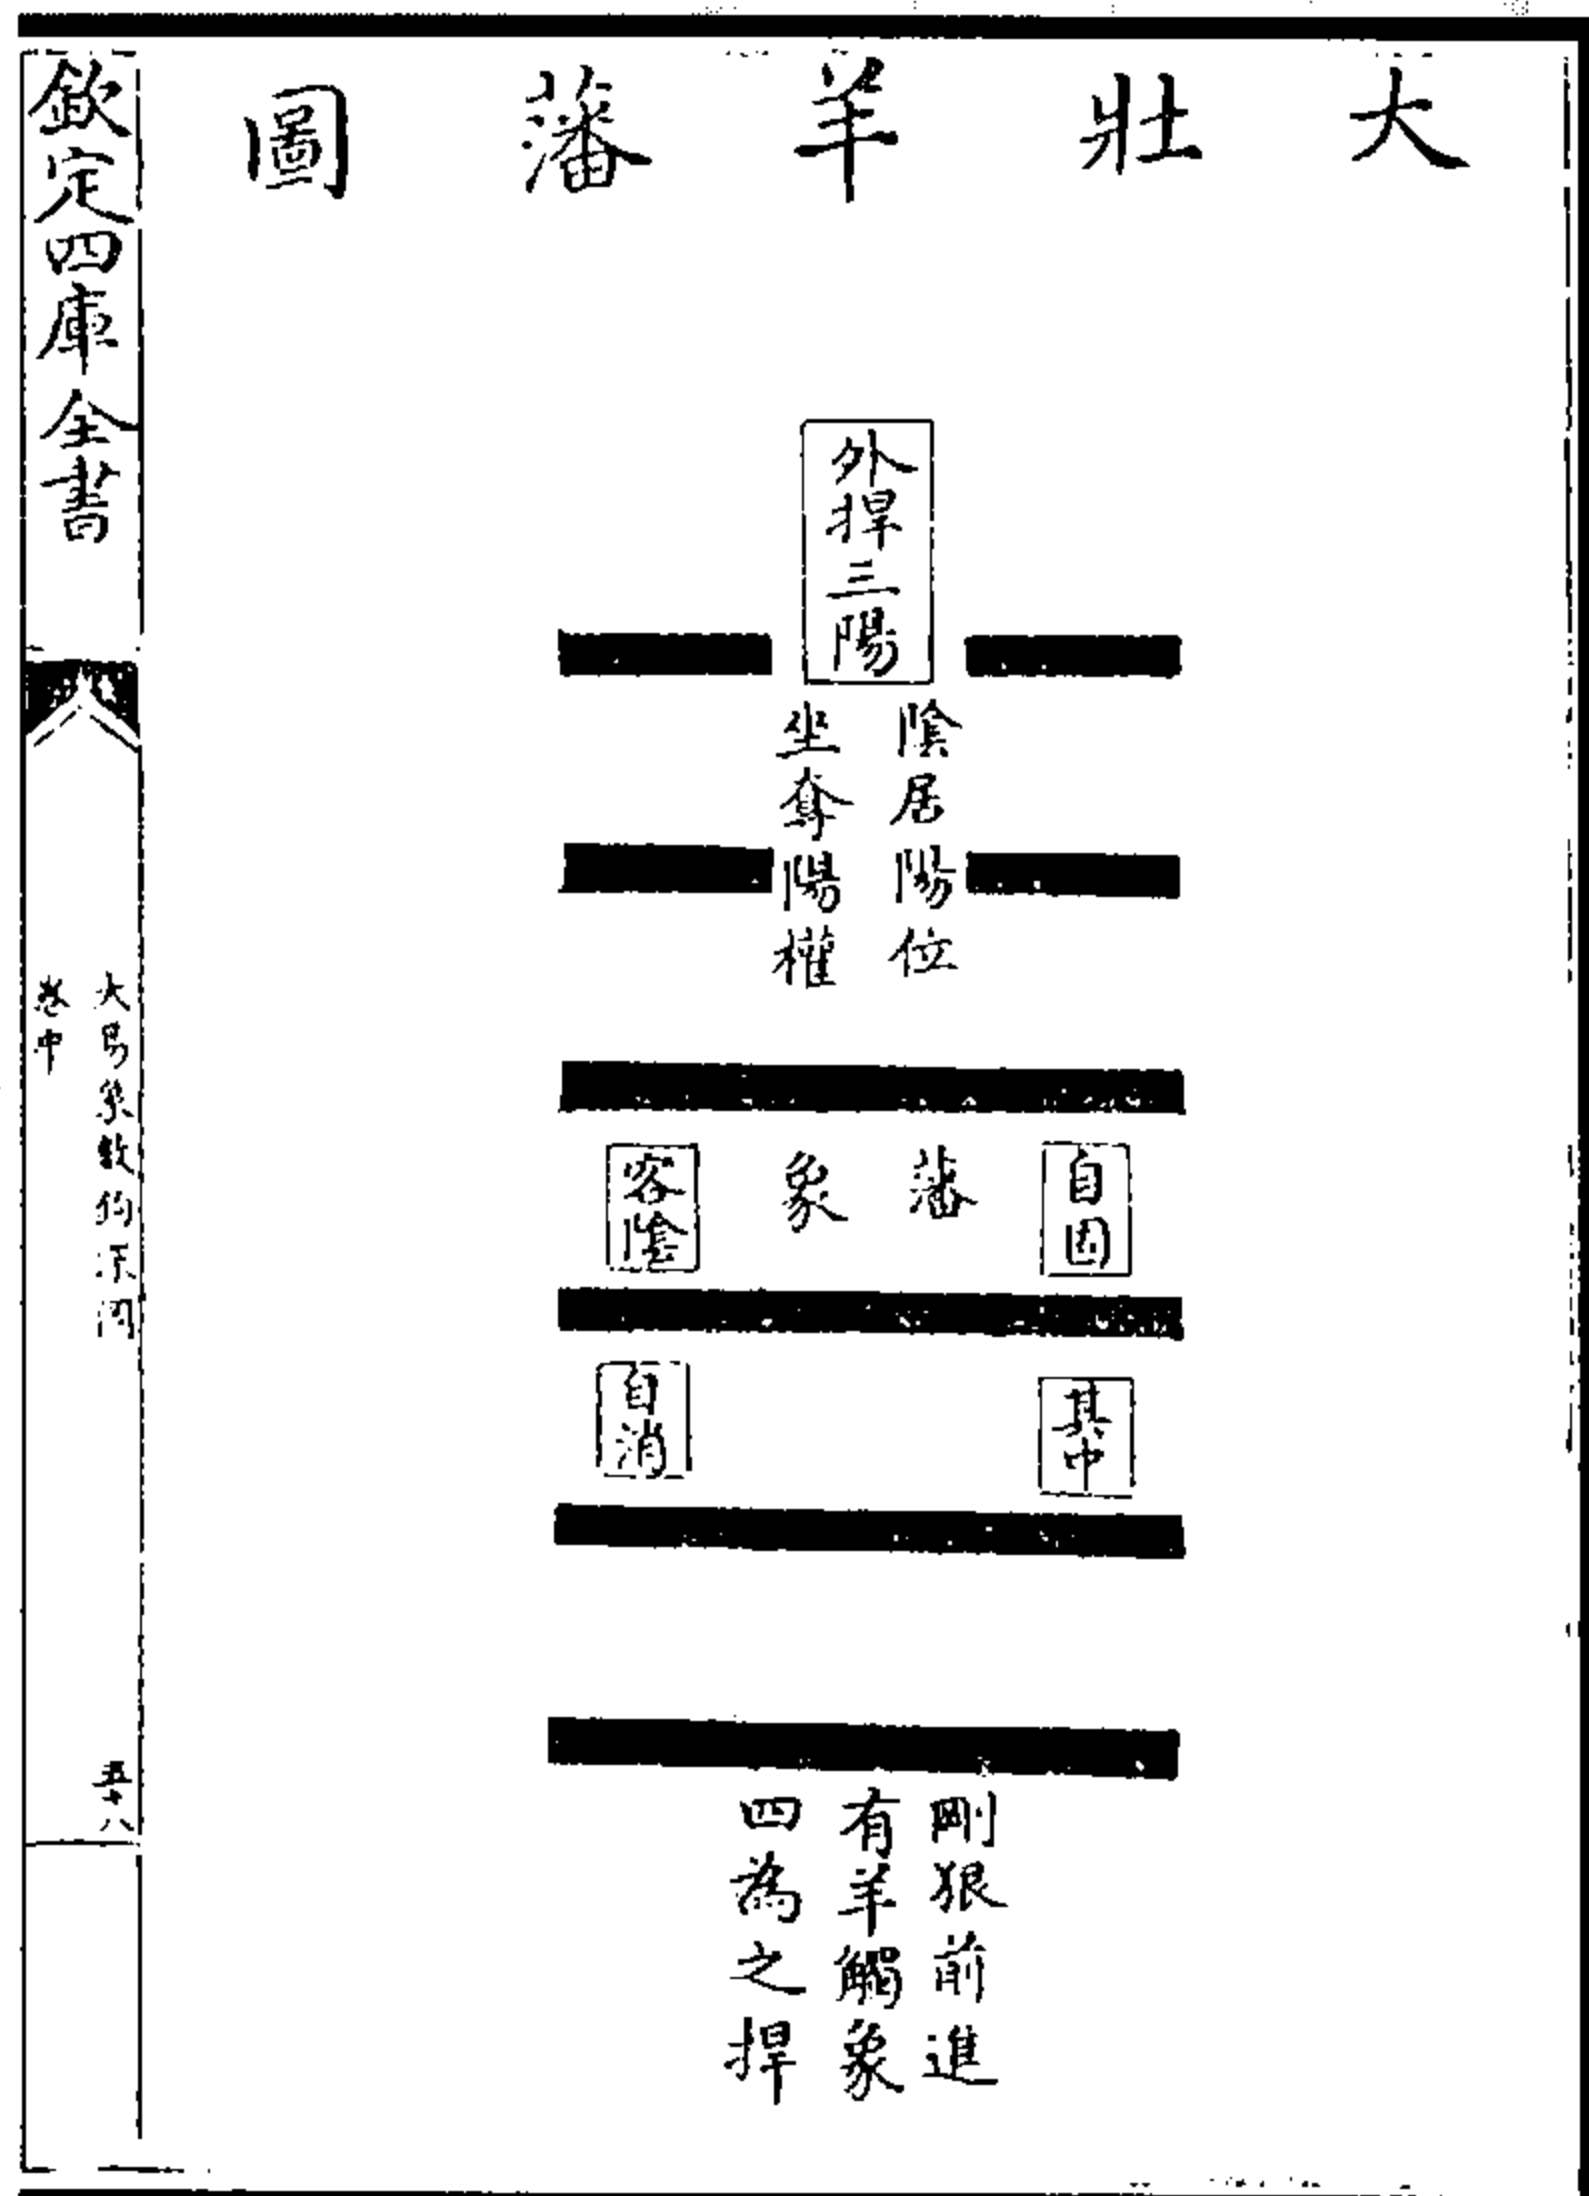 大壯羊藩圖
外捍三陽
陰居陽位
坐奪陽權
自固
藩象
容陰
其中
自消
剛狠前進
有羊觸象
四為之捍
欽定四庫全書
大易象數鉤深圖
卷中
五十八